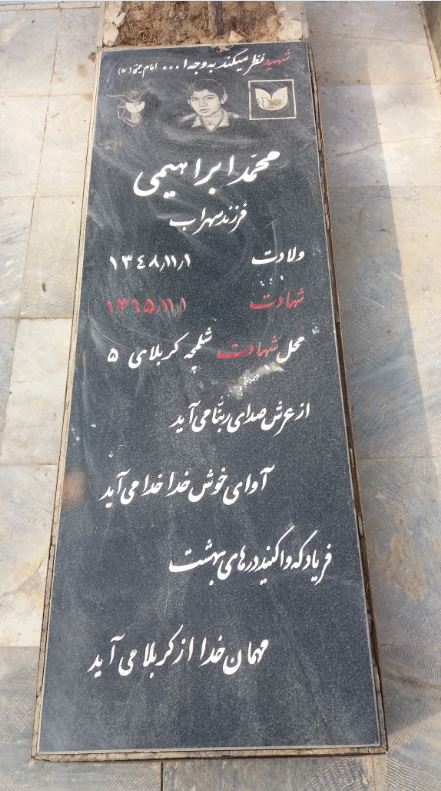 شهید نظر میکند به وجه ا... امام خمینی (ره)
محمد ابراهیمی
فرزند سهراب
ولادت ۱۳۴۸/۱۱/۱
شهادت ۱۳۶۵/۱۱/۱
محل شهادت شلمچه کربلای ۵
از عرش صدای ربّنا می آید
آوای خوش خدا خدا می آید
فریاد که واکنید درهای بهشت
مهمان خدا از کربلا می آید